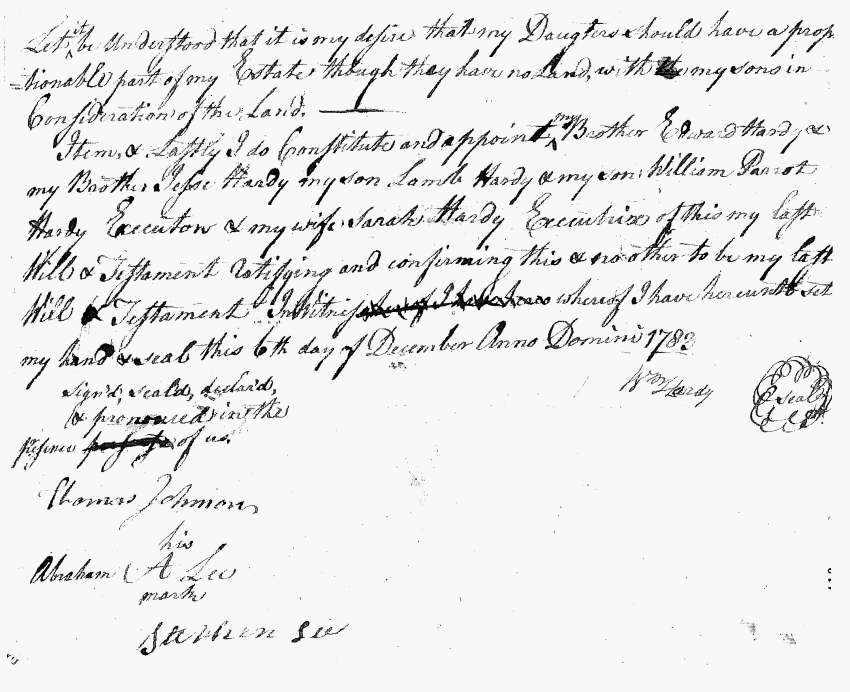 Let it be Understood that it is my desire that my Daugters should have a prop
=tionable part of my Estate though they have no Land, with my sons in
Consideration of the Land.
Item, & Lastly I do Constitute and appoint my Brother Edward Hardy &
my Brother Jesse Hardy my son Lamb Hardy & my son William Parrot
Hardy Executors & my wife Sarah Hardy Executrix of this my last
Will & Testament ratifying and confirming this & no other to be my last
Will & Testament In Witness whereof I have hereunto set
my hand & seal this 6th day of December Anno Domini 1783
Wm Hardy
seal
sign'd, seald, declar'd,
& pronouced in the
presence of us.
Thomas Johnson
his
Abraham A Lee
mark
Stephen Lee